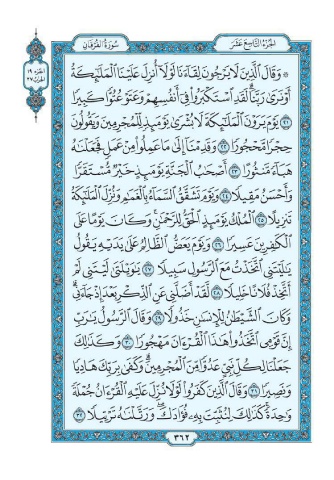 سُورَةُ الفُرْقَانِ
الجُزْءُ التَّاسِعَ عَشَرَ
الجزء ١٩
الحزب ٣٧
۞ وَقَالَ ٱلَّذِينَ لَا يَرْجُونَ لِقَآءَنَا لَوْلَآ أُنزِلَ عَلَيْنَا ٱلْمَلَٰٓئِكَةُ
أَوْ نَرَىٰ رَبَّنَا لَقَدِ ٱسْتَكْبَرُوا۟ فِىٓ أَنفُسِهِمْ وَعَتَوْ عُتُوًّا كَبِيرًا
٢١ يَوْمَ يَرَوْنَ ٱلْمَلَٰٓئِكَةَ لَا بُشْرَىٰ يَوْمَئِذٍ لِّلْمُجْرِمِينَ وَيَقُولُونَ
حِجْرًا مَّحْجُورًا ٢٢ وَقَدِمْنَآ إِلَىٰ مَا عَمِلُوا۟ مِنْ عَمَلٍ فَجَعَلْنَٰهُ
هَبَآءً مَّنثُورًا ٢٣ أَصْحَٰبُ ٱلْجَنَّةِ يَوْمَئِذٍ خَيْرٌ مُّسْتَقَرًّا
وَأَحْسَنُ مَقِيلًا ٢٤ وَيَوْمَ تَشَقَّقُ ٱلسَّمَآءُ بِٱلْغَمَٰمِ وَنُزِّلَ ٱلْمَلَٰٓئِكَةُ
تَنزِيلًا ٢٥ ٱلْمُلْكُ يَوْمَئِذٍ ٱلْحَقُّ لِلرَّحْمَٰنِ وَكَانَ يَوْمًا عَلَى
ٱلْكَٰفِرِينَ عَسِيرًا ٢٦ وَيَوْمَ يَعَضُّ ٱلظَّالِمُ عَلَىٰ يَدَيْهِ يَقُولُ
يَٰلَيْتَنِى ٱتَّخَذْتُ مَعَ ٱلرَّسُولِ سَبِيلًا ٢٧ يَٰوَيْلَتَىٰ لَيْتَنِى لَمْ
أَتَّخِذْ فُلَانًا خَلِيلًا ٢٨ لَّقَدْ أَضَلَّنِى عَنِ ٱلذِّكْرِ بَعْدَ إِذْ جَآءَنِى
وَكَانَ ٱلشَّيْطَٰنُ لِلْإِنسَٰنِ خَذُولًا ٢٩ وَقَالَ ٱلرَّسُولُ يَٰرَبِّ
إِنَّ قَوْمِى ٱتَّخَذُوا۟ هَٰذَا ٱلْقُرْءَانَ مَهْجُورًا ٣٠ وَكَذَٰلِكَ
جَعَلْنَا لِكُلِّ نَبِىٍّ عَدُوًّا مِّنَ ٱلْمُجْرِمِينَ وَكَفَىٰ بِرَبِّكَ هَادِيًا
وَنَصِيرًا ٣١ وَقَالَ ٱلَّذِينَ كَفَرُوا۟ لَوْلَا نُزِّلَ عَلَيْهِ ٱلْقُرْءَانُ جُمْلَةً
وَٰحِدَةً كَذَٰلِكَ لِنُثَبِّتَ بِهِۦ فُؤَادَكَ وَرَتَّلْنَٰهُ تَرْتِيلًا ٣٢
٣٦٢